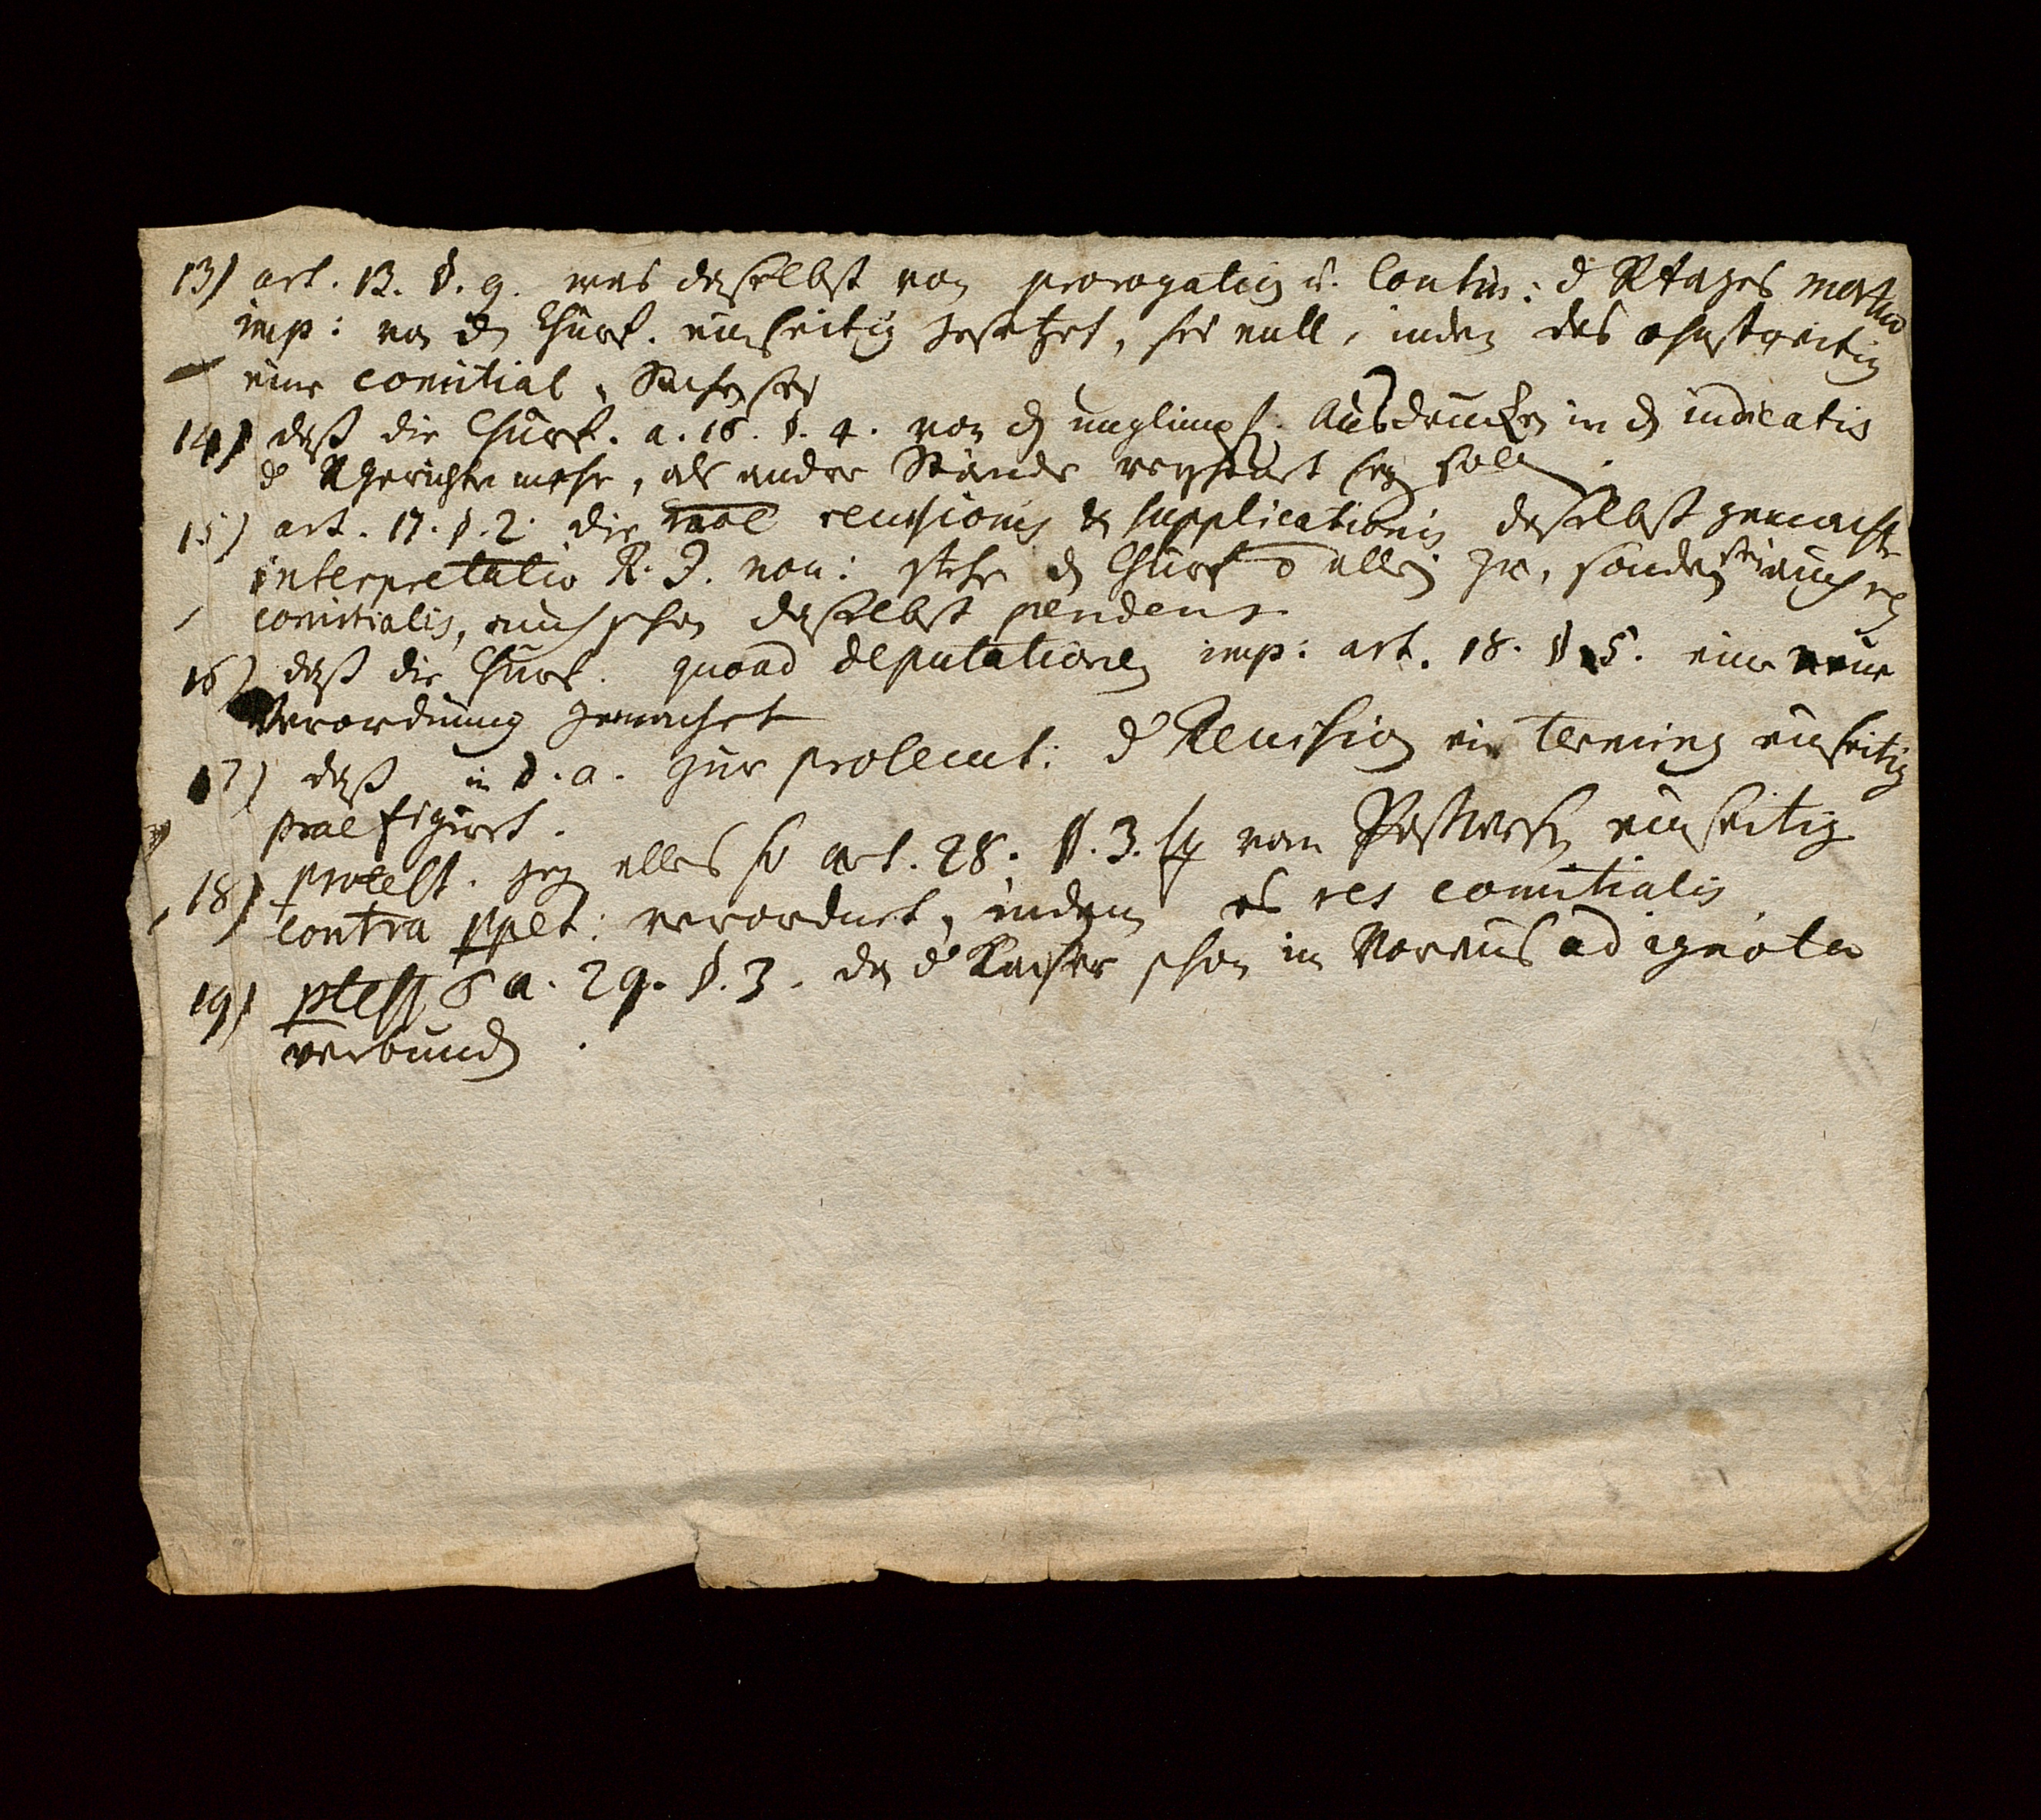 13) art. 13. §. 9. was daselbst von prorogation u. Contin: d Rtages mortuo
imp: von dn Churf. einseitig gesetzet, sei null, indem das ohnstreitig
eine comitial Sache sey
14) daß die Churf. a. 16. §. 4. von dn unglimpfl. Ausdrucken in dn indicatis
d RGerichte mehr, als andre Stände verschont seyn solln
15) art. 17. §. 2. die revisionis & supplicationis daselbst gemachte
interpretatio R. J. nov: stehe dn Churf allein zu, sondern sei auch res
comitialis, auch schon daselbst pendent
16) daß die Churf. quoad deputationem imp: art. 18. §. 5. eine neue
Verordnung gemachet
17) daß in §. a. zur d Revision ein Terminus einseitig
praefigirt.
18) protest. gegen alles so art. 28. §. 3. sq vom Postwesen einseitig
contra ppet: verordnet, indem es res comitialis
19) ptest a. 29. §. 3. da d Kaiser schon im Voraus ad ignota
verbunden.